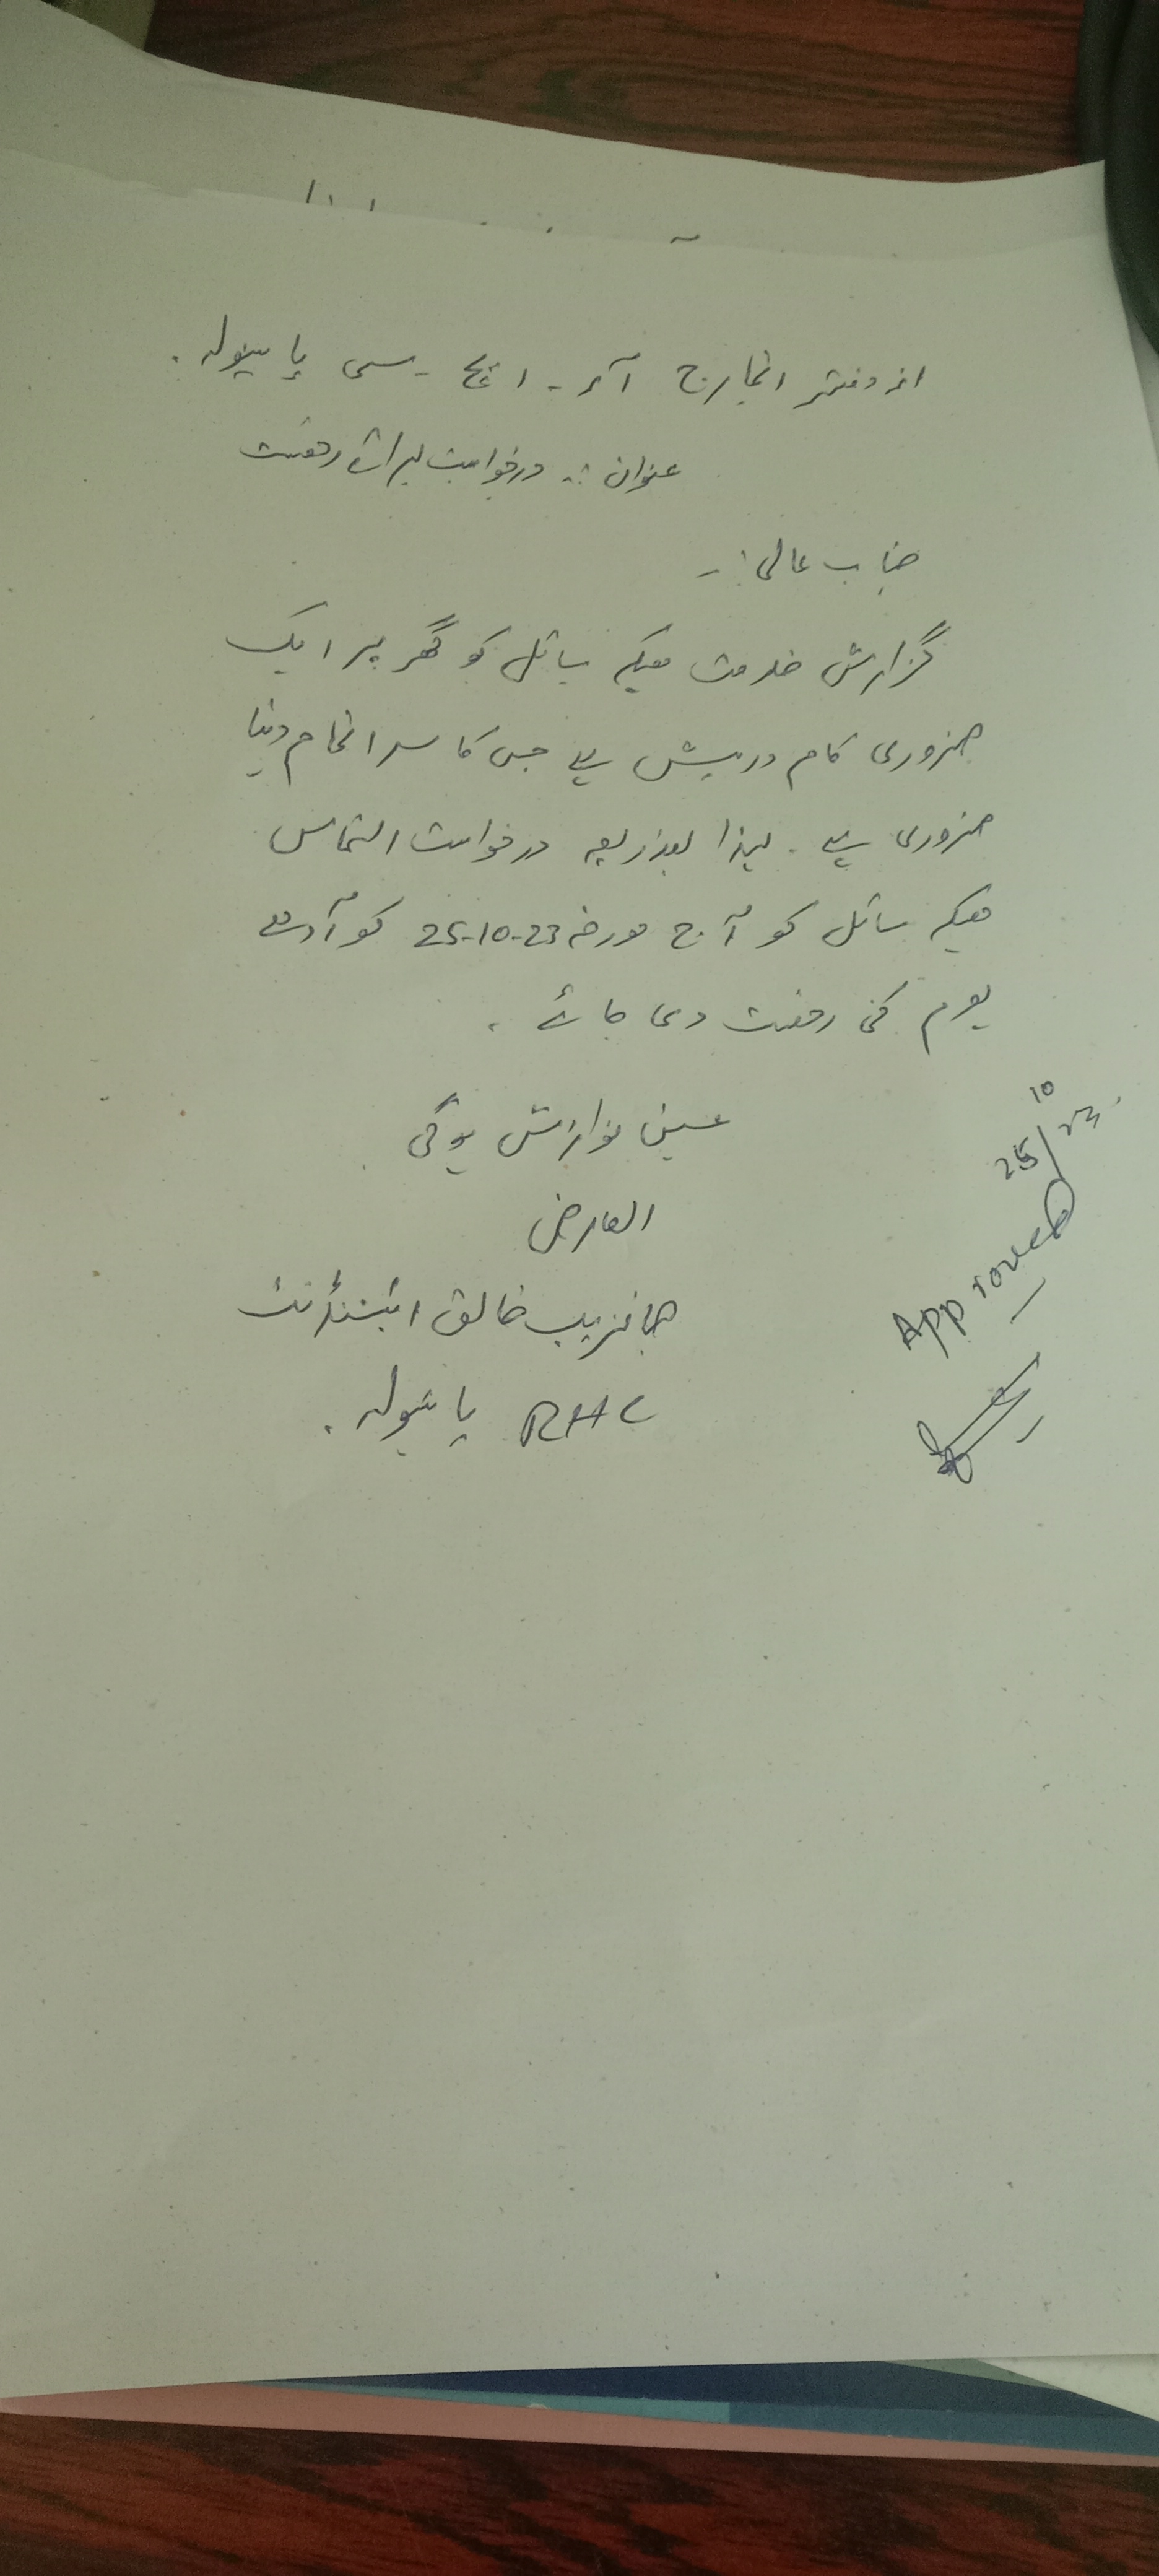 از دفتر انچارج آر - ایچ - سی پاہیولہ .
عنوان :. درخواست برائے رخصت
جناب عالی :-
گزارش خدمت ہیکہ سائل کو گھر پر ایک
ضروری کام درپیش ہے جس کا سر انجام دینا
ضروری ہے . لہذا بذریعہ درخواست التماس
ہیکہ سائل کو آج مورخہ 25-10-23 کو آدھے
یوم کی رخصت دی جائے .
عین نوازش ہوگی
العارض
خالق اٹینڈنٹ
RHC
25/10/23.
Approved